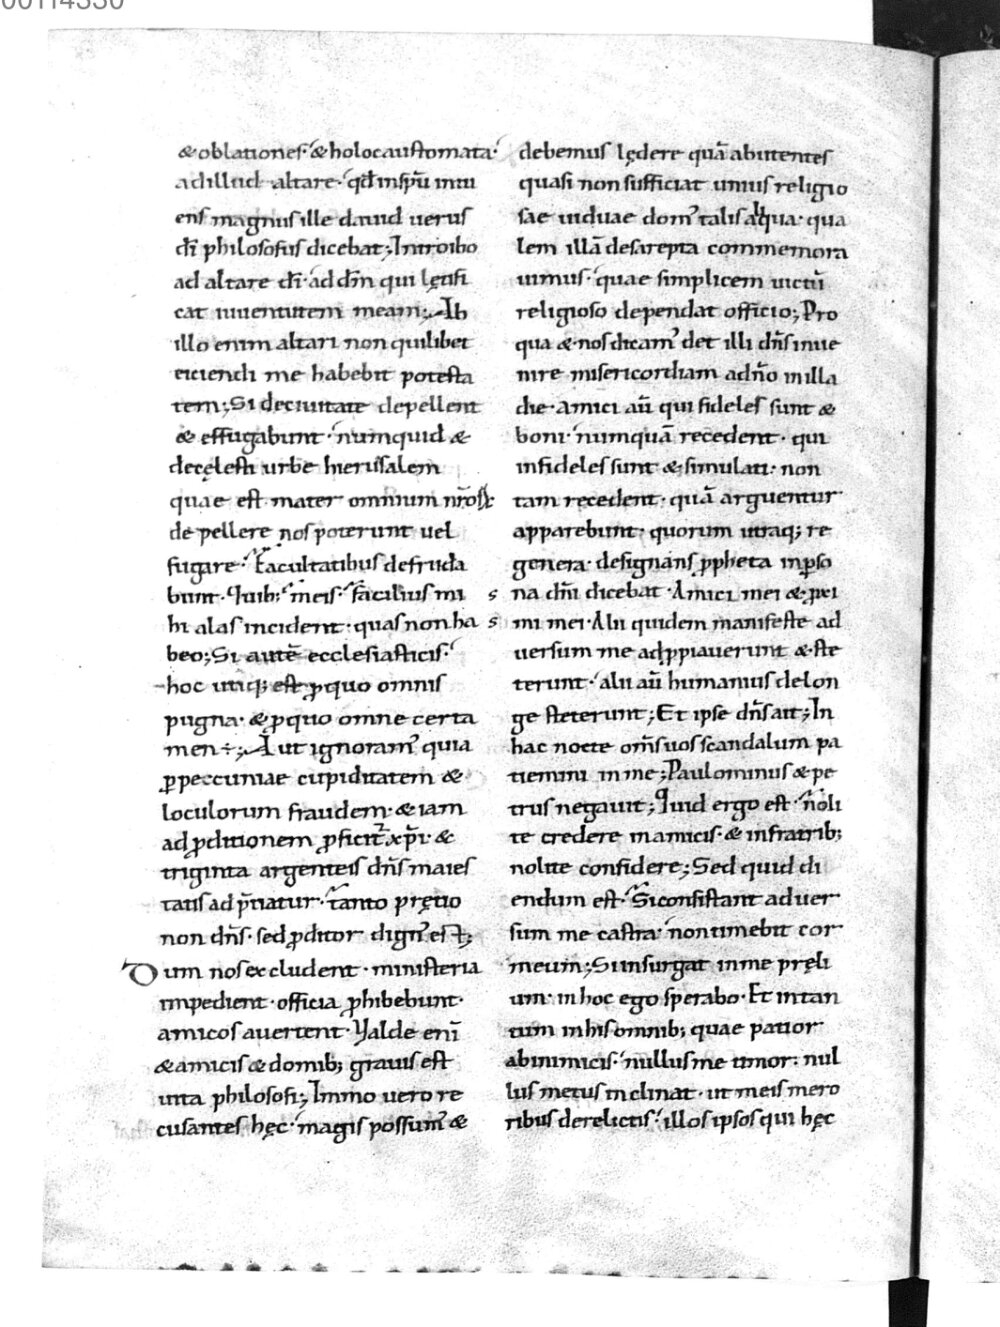 00114330
& oblationes· & holocaustomata·
ad illud altare· qd̄ in sp̄u intu
ens magnus ille dauid uerus
dī philosofus dicebat; Introibo
ad altare dī· ad dm̄ qui lętifi
cat iuuentutem meam; Ab
illo enim altari non quilibet
eiciendi me habebit potesta
tem; Si de ciuitate depellent
& effugabunt· numquid &
de cęlesti urbe hierusalem
quae est mater omnium nr̄or
depellere nos poterunt uel
fugare· Facultatibus defruda
bunt· Quib; meis· facilius mi
hi alas incident· quas non ha
beo; Si autē ecclesiasticis·
hoc utiq; est ꝓ quo omnis
pugna· & ꝓ quo omne certa
men ÷; Aut ignoram᾿ quia
ꝑ peccuniae cupiditatem &
loculorum fraudem· & iam
ad ꝓditionem ꝓficit xp̄i· &
triginta argenteis dn̄s maies
tatis ad p̄tiatur· tanto prętio
non dn̄s· sed ꝓditor dign᾿ est;
Dum nos excludent· ministeria
impedient· officia ꝓhibebunt·
amicos auertent· Valde eni̅
& amicis & domib; grauis est
uita philosofi; Immo uero re
cusantes hęc· magis possum᾿ &
debemus lędere quā abutentes
quasi non sufficiat unius religio
sae uiduae dom᾿ talis aliqua· qua
lem illā de sarepta commemora
uimus· quae simplicem uictū
religioso dependat officio; Pro
qua & nos dicam᾿ det illi dn̄s inue
nire misericordiam a dn̄o in illa
die· Amici aū qui fideles sunt &
boni· numquā recedent· qui
infideles sunt & simulati· non
tam recedent· quā arguentur
apparebunt· quorum utraq; re
genera· designans ꝓpheta in ꝑso
s na dn̄i dicebat· Amici mei & ꝓxi
s mi mei· Alii quidem manifeste ad
uersum me adpꝓpiauerunt & ste
terunt· alii aū humanius de lon
ge steterunt; Et ipse dn̄s ait; In
hac nocte om̄s uos scandalum pa
tiemini in me; Paulominus & pe
trus negauit; Quid ergo est· noli
te credere in amicis· & in fratrib;
nolite confidere; Sed quid di
endum est· Si consistant aduer
sum me castra· non timebit cor
meum; Si insurgat in me pręli
um· in hoc ego sperabo· Et in tan
tum in his omnib; quae patior
ab inimicis· nullus me timor· nul
lus metus inclinat· ut meis mero
ribus derelictis· illos ipsos qui hęc